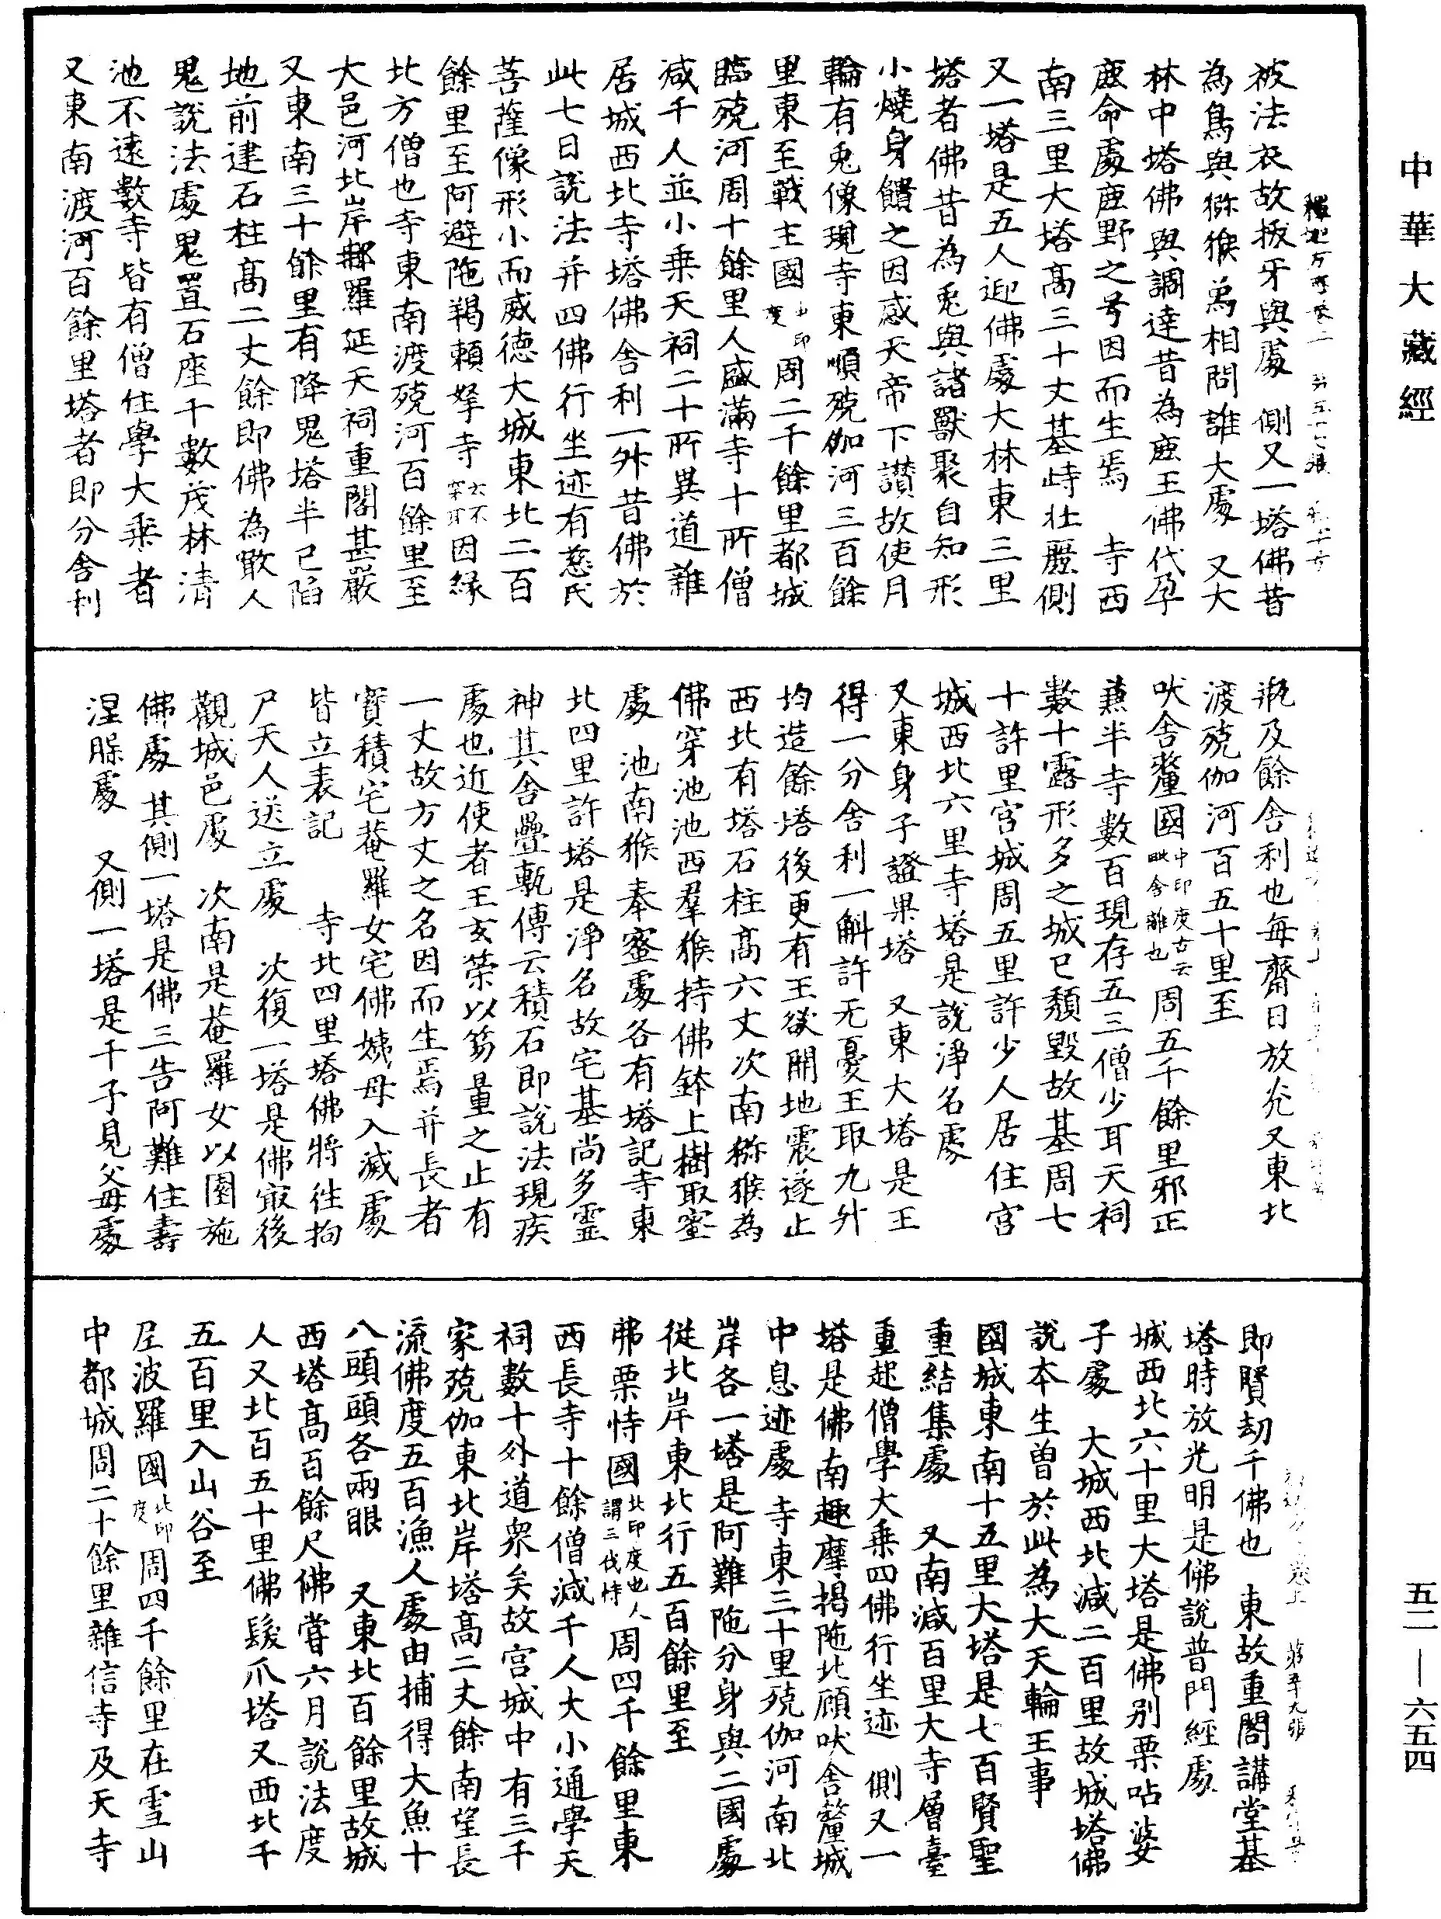 中華大藏經
被法衣故拔牙與處　側又一塔佛昔
為鳥與猕猴𤼵相問誰大處　又大
林中塔佛與調達昔為鹿王佛代孕
鹿命處鹿野之号因而生焉　寺西
南三里大塔高三十丈基峙壮麗側
又一塔是五人迎佛處大林東三里
塔者佛昔為兎與諸獸聚自知形
小燒身饋之因感天帝下讃故使月
輪有兎像現寺東順殑伽河三百餘
里東至戰主國中印度周二千餘里都城
臨殑河周十餘里人盛滿寺十所僧
减千人並小乘天祠二十所異道雜
居城西北寺塔佛舍利一升昔佛於
此七日說法并四佛行坐迹有慈氏
菩薩像形小而威德大城東北二百
餘里至阿避陁羯頼拏寺云不穿耳因緣
北方僧也寺東南渡殑河百餘里至
大邑河北岸𨙻羅延天祠重閣甚嚴
又東南三十餘里有降鬼塔半已陷
地前建石柱高二丈餘即佛為噉人
鬼說法處鬼置石座千數茂林清
池不遠數寺皆有僧住學大乘者
又東南渡河百餘里塔者即分舍利
瓶及餘舍利也每齋日放光又東北
渡殑伽河百五十里至
吠舍釐國中印度古云毗舍離也周五千餘里邪正
兼半寺數百現存五三僧少耳天祠
數十露形多之城已頹毀故基周七
十許里宮城周五里許少人居住宮
城西北六里寺塔是說淨名處
又東身子證果塔　又東大塔是王
得一分舍利一斛許无憂王取九升
均造餘塔後更有王欲開地震遂止
西北有塔石柱高六丈次南猕猴為
佛穿池池西羣猴持佛鉢上樹取蜜
處　池南猴奉蜜處各有塔記寺東
北四里許塔是淨名故宅基尚多靈
神其舍疊甎傳云積石即說法現疾
處也近使者王玄策以笏量之止有
一丈故方丈之名因而生焉并長者
寶積宅菴羅女宅佛姨母入滅處
皆立表記　　寺北四里塔佛將往拘
尸天人送立處　次復一塔是佛㝡後
觀城邑處　次南是菴羅女以園施
佛處　其側一塔是佛三告阿難住壽
涅槃處　又側一塔是千子見父母處
即賢劫千佛也　東故重閣講堂基
塔時放光明是佛說普門經處
城西北六十里大塔是佛別栗呫婆
子處　大城西北减二百里故城塔佛
說本生曾於此為大天輪王事
國城東南十五里大塔是七百賢聖
重結集處　又南减百里大寺層臺
重起僧學大乘四佛行坐迹　側又一
塔是佛南趣摩揭陁北顧吠舍釐城
中息迹處　寺東三十里殑伽河南北
岸各一塔是阿難陁分身與二國處
從北岸東北行五百餘里至
弗栗恃國北印度也人謂三伐恃周四千餘里東
西長寺十餘僧减千人大小通學天
祠數十外道衆矣故宮城中有三千
家殑伽東北岸塔高二丈餘南望長
流佛度五百漁人處由捕得大魚十
八頭頭各兩眼　又東北百餘里故城
西塔高百餘尺佛嘗六月說法度
人又北百五十里佛髮爪塔又西北千
五百里入山谷至
尼波羅國北印度周四千餘里在雪山
中都城周二十餘里雜信寺及天寺
五二—六五四